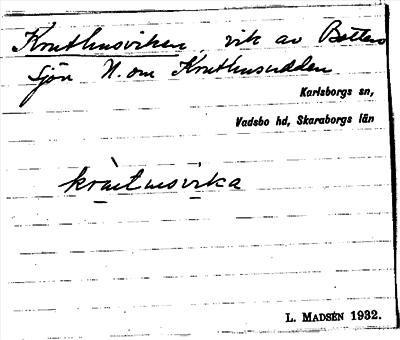 Kruthusviken, vik av Bottensjön N. om Kruthusudden
Karlsborgs sn,
Vadsbo hd, Skaraborgs län
L. MADSÉN 1932.